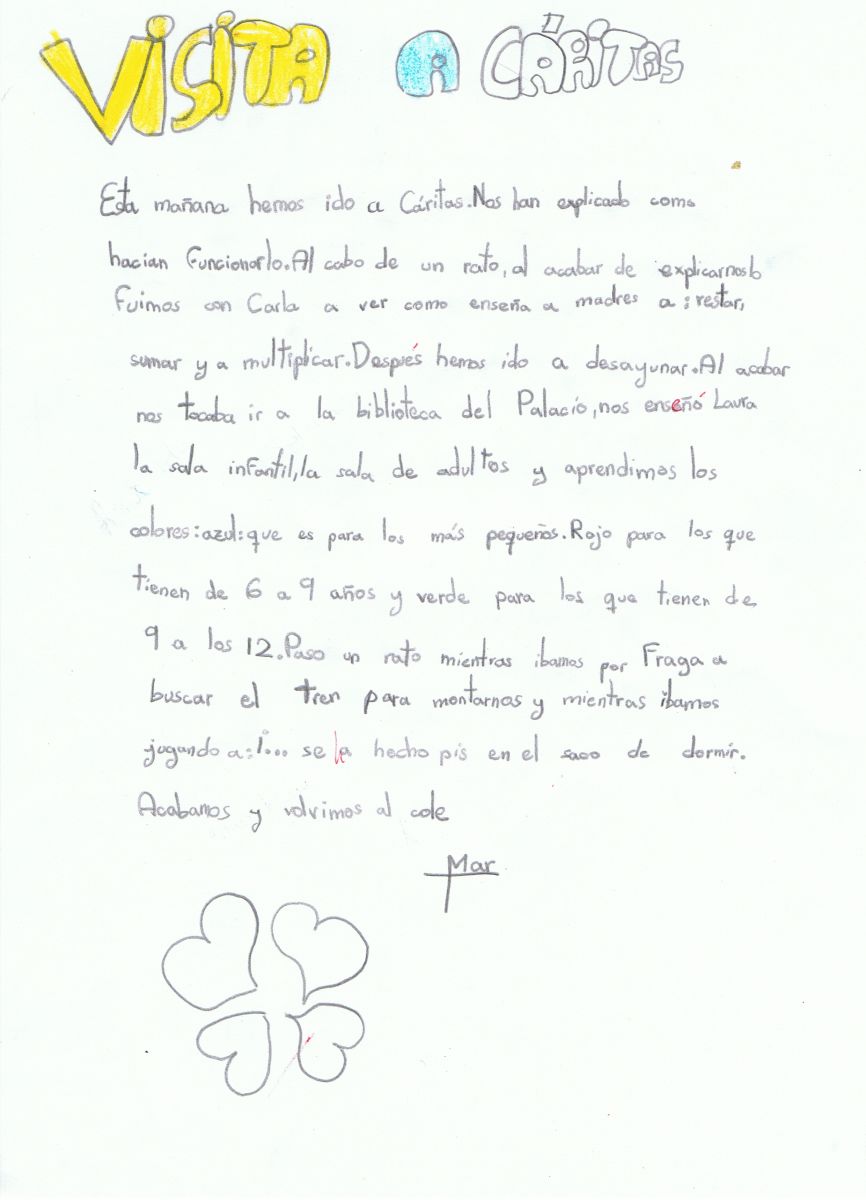 VISITA A CÁRITAS
Esta mañana hemos ido a Cáritas.Nos han explicado como
hacían funcionarlo.Al cabo de un rato, al acabar de explicarnoslo
fuimos con Carla a ver como enseña a madres a: restar,
sumar y a multiplicar.Después hemos ido a desayunar.Al acabar
nos tocaba ir a la biblioteca del Palacio, nos enseñó Laura
la sala infantil, la sala de adultos y aprendimos los
colores: azul: que es para los más pequeños.Rojo para los que
tienen de 6 a 9 años y verde para los que tienen de
9 a los 12.Paso un rato mientras ibamos por Fraga a
buscar el tren para montarnos y mientras ibamos
jugando a: ¡... se ha hecho pis en el saco de dormir.
Acabamos y volvimos al cole
Mar